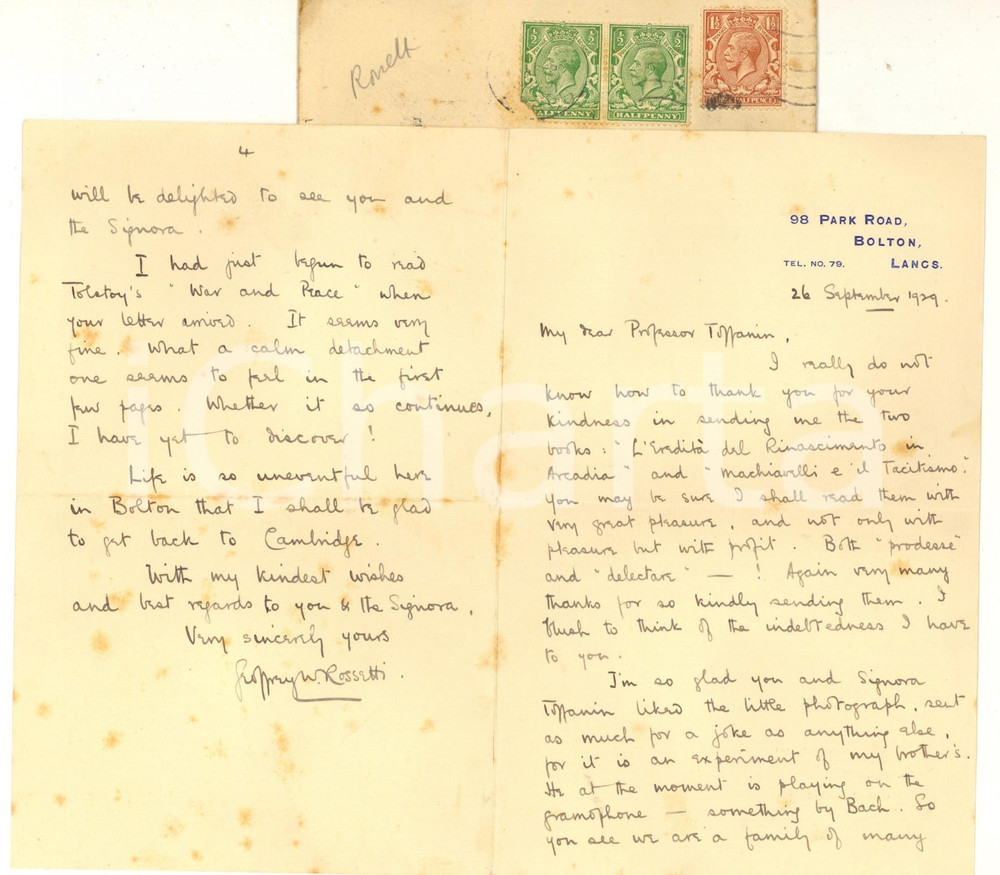 Rossetti
½ ½
½ ½
1½ 1½
HALFPENNY
HALFPENNY
HALFPENCE
98 PARK ROAD,
BOLTON,
TEL. NO. 79. LANCS.
26 September 1929.
My dear Professor Toffanin,
I really do not
know how to thank you for your
kindness in sending me the two
books: "L'Eredità del Rinascimento in
Arcadia" and "Machiavelli e il Tacitismo".
You may be sure I shall read them with
very great pleasure, and not only with
pleasure but with profit. Both "prodesse"
and "delectare" — ! Again very many
thanks for so kindly sending them. I
blush to think of the indebtedness I have
to you.
I'm so glad you and Signora
Toffanin liked the little photograph, sent
as much for a joke as anything else,
for it is an experiment of my brother's.
He at the moment is playing on the
gramophone — something by Bach. So
you see we are a family of many
4
will be delighted to see you and
the Signora.
I had just begun to read
Tolstoy's "War and Peace" when
your letter arrived. It seems very
fine. What a calm detachment
one seems to feel in the first
few pages. Whether it so continues,
I have yet to discover!
Life is so uneventful here
in Bolton that I shall be glad
to get back to Cambridge.
With my kindest wishes
and best regards to you & the Signora,
Very sincerely yours
Geoffrey W. Rossetti.
iCharta